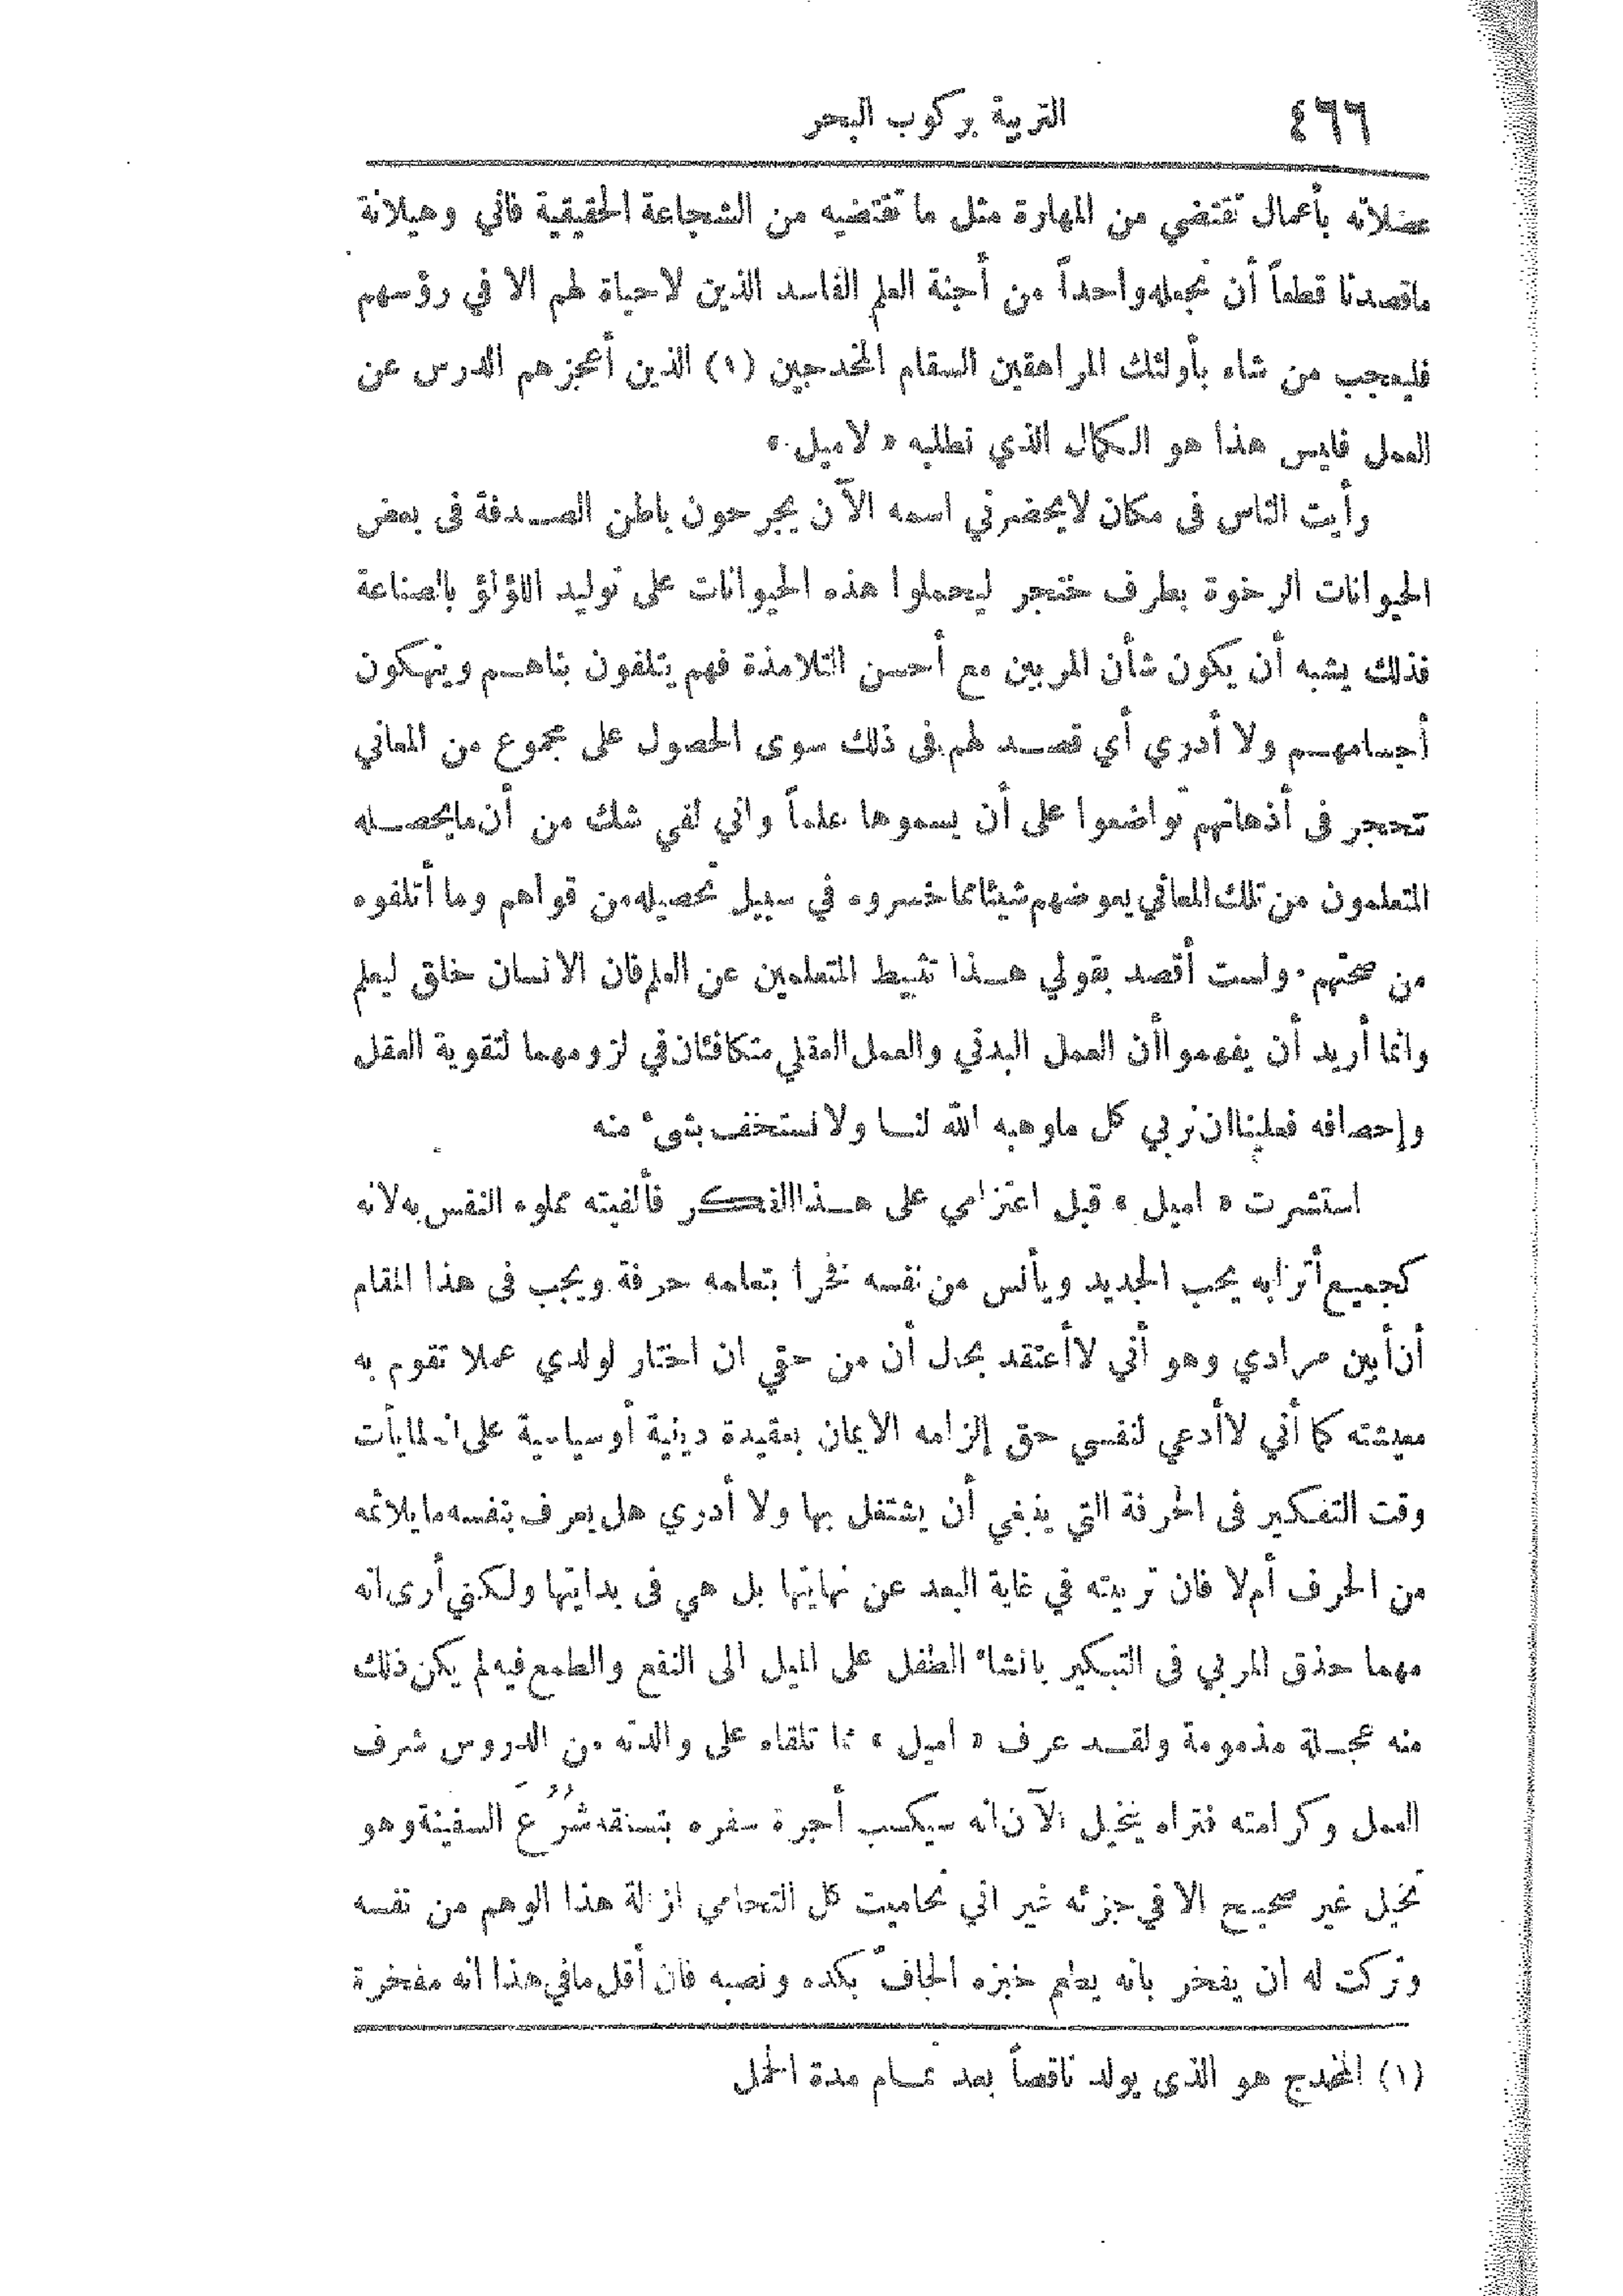 ٤٦٦
التربية بركوب البحر
عضلاته بأعمال تقتضي من المهارة مثل ما تقتضيه من الشجاعة الحقيقية فاني وهيلانة
ماقصدنا قطعاً أن نجعله واحداً من أجنة العلم الفاسد الذين لاحياة لهم الا في رؤسهم
فليعجب من شاء بأولئك المراهقين السقام المخدجين (١) الذين أعجزهم الدرس عن
العمل فليس هذا هو الكمال الذي نطلبه « لاميل »
رأيت الناس فى مكان لايحضرني اسمه الآن يجرحون باطن الصـدفة فى بعض
الحيوانات الرخوة بطرف خنجر ليحملوا هذه الحيوانات على توليد اللؤلؤ بالصناعة
فذلك يشبه أن يكون شأن المربين مع أحسن التلامذة فهم يتلفون بناهـم وينهكون
أجسامهـم ولا أدري أي قصـد لهم فى ذلك سوى الحصول على مجموع من المعاني
تتحجر فى أذهانهم تواضعوا على أن يسموها علماً واني لفي شك من أن مايحصـله
المتعلمون من تلك المعاني يعوضهم شيئا مما خسروه في سبيل تحصيله من قواهم وما أتلفوه
من صحتهم . ولست أقصد بقولي هـذا تثبيط المتعلمين عن العلم فان الانسان خلق ليعلم
وانما أريد أن يفهموا أن العمل البدني والعمل العقلي متكافئان في لزومهما لتقوية العقل
وإحصافه فعلينا ان نربي كل ماوهبه الله لنـا ولا نستخف بشيء منه
استشرت « اميل » قبل اعتزامي على هـذا الفكر فألفيته مملوء النفس به لانه
كجميع أترابه يحب الجديد ويأنس من نفسه فخرا بتعلمه حرفة ويجب فى هذا المقام
أن أبين مرادي وهو أني لا أعتقد بحال أن من حقي ان اختار لولدي عملا تقوم به
معيشته كما أني لا أدعي لنفسي حق إلزامه الايمان بعقيدة دينية أو سياسية على انه لما يأت
وقت التفكير فى الحرفة التي ينبغي أن يشتغل بها ولا أدري هل يعرف بنفسه مايلائمه
من الحرف أم لا فان تربيته في غاية البعد عن نهايتها بل هي فى بدايتها ولكني أرى انه
مهما حذق المربي فى التبكير بانشاء الطفل على الميل الى النفع والطمع فيه لم يكن ذلك
منه عجـلة مذمومة ولقـد عرف « اميل » مما تلقاه على والدته من الدروس شرف
العمل وكرامته فتراه يتخيل الآن انه سيكسب أجرة سفره بتسلقه شُرُعَ السفينة وهو
تخيل غير صحيح الا في جزئه غير اني تحاميت كل التحامي ازالة هذا الوهم من نفسه
وتركت له ان يفخر بانه يطعم خبزه الجافّ بكده ونصبه فان أقل مافي هذا انه مفخرة
(١) المخدج هو الذى يولد ناقصاً بعد تمـام مدة الحمل